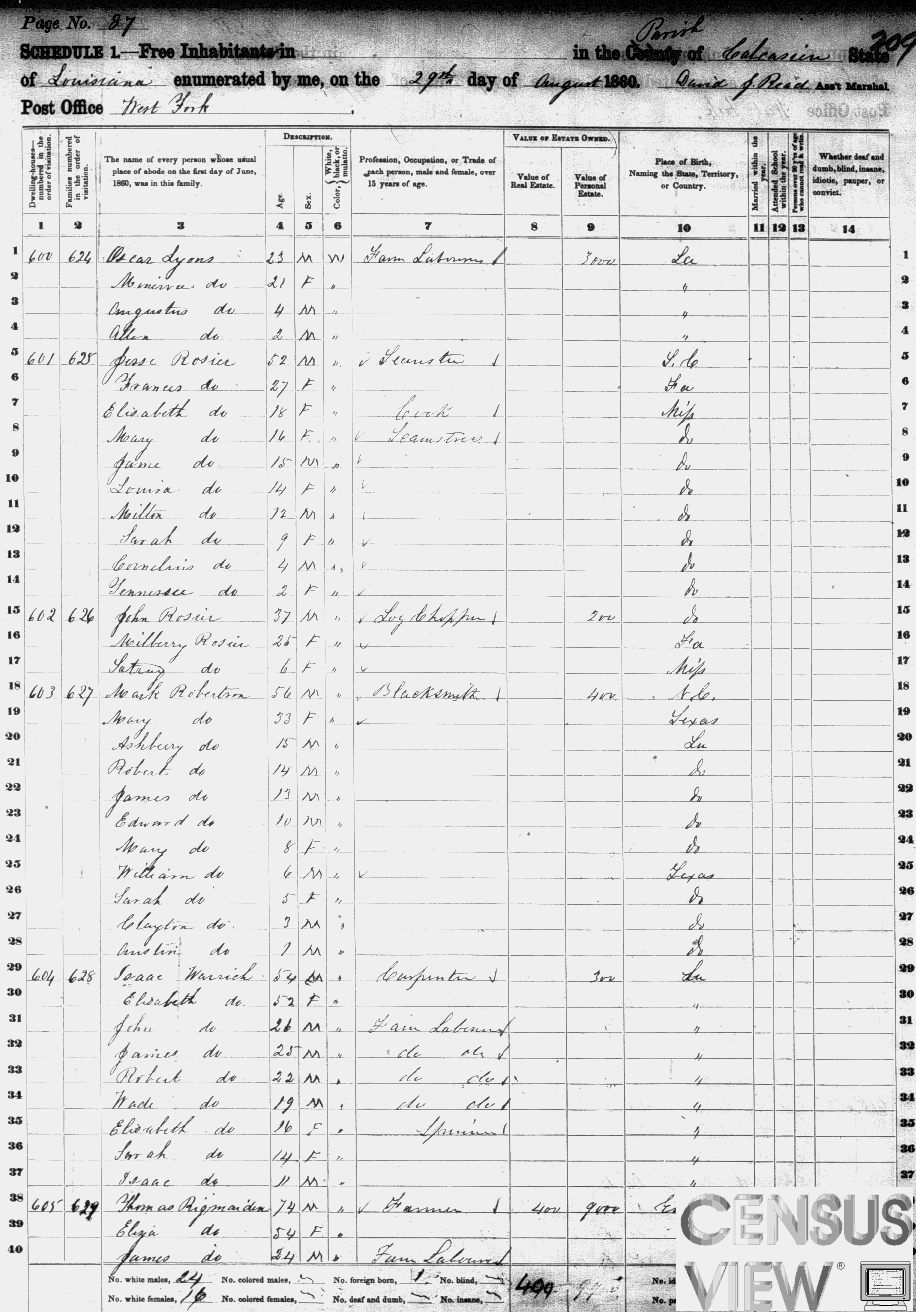 Page No. 87
Parish 209
SCHEDULE 1.—Free Inhabitants in in the County of Calcasieu State
of Louisiana enumerated by me, on the 29th day of August 1860. David J Read Ass't Marshal
Post Office West Fork
Dwelling-houses—numbered in the order of visitation. Families numbered in the order of visitation. The name of every person whose usual place of abode on the first day of June, 1860, was in this family. DESCRIPTION. Age. Sex. Color, White, black, or mulatto. Profession, Occupation, or Trade of each person, male and female, over 15 years of age. VALUE OF ESTATE OWNED. Value of Real Estate. Value of Personal Estate. Place of Birth, Naming the State, Territory, or Country. Married within the year. Attended School within the year. Persons over 20 y'rs of age who cannot read & write. Whether deaf and dumb, blind, insane, idiotic, pauper, or convict.
1 2 3 4 5 6 7 8 9 10 11 12 13 14
1 600 624 Oscar Lyons 23 M W Farm Labourer 3000 La 1
2 Minerva do 21 F " " 2
3 Augustus do 4 M " " 3
4 Allen do 2 M " " 4
5 601 625 Jesse Rosier 52 M " S.C 5
6 Frances do 27 F " 6
7 Elisabeth do 18 F " Cook Miss 7
8 Mary do 16 F " Seamstress do 8
9 Jame do 15 M " do 9
10 Louisa do 14 F " do 10
11 Milton do 12 M " do 11
12 Sarah do 9 F " do 12
13 Cornelius do 4 M " do 13
14 Tennessee do 2 F " do 14
15 602 626 John Rosier 37 M " Log Chopper 200 do 15
16 Milberry Rosier 25 F " 16
17 do 6 F " Miss 17
18 603 627 Mark Robertson 56 M " Blacksmith 400 N.C. 18
19 Mary do 33 F " Texas 19
20 Ashbury do 15 M " La 20
21 Robert do 14 M " do 21
22 James do 13 M " do 22
23 Edward do 10 M " do 23
24 Mary do 8 F " do 24
25 William do 6 M " Texas 25
26 Sarah do 5 F " do 26
27 Clayton do 3 M " do 27
28 Austin do 1 M " do 28
29 604 628 Isaac Warrick 54 M " Carpenter 300 La 29
30 Elisabeth do 52 F " " 30
31 John do 26 M " Farm Labourer " 31
32 James do 25 M " do do " 32
33 Robert do 22 M " do do " 33
34 Wade do 19 M " do do " 34
35 Elisabeth do 16 F " " 35
36 Sarah do 14 F " " 36
37 Isaac do 11 M " " 37
38 605 629 Thomas Rigmaiden 74 M " Farmer 400 9000
39 Eliza do 54 F "
40 James do 24 M " Farm Labourer
No. white males, 24 No. colored males, No. foreign born, 1 No. blind, 400
No. white females, 16 No. colored females, No. deaf and dumb, No. insane,
CENSUS
VIEW®